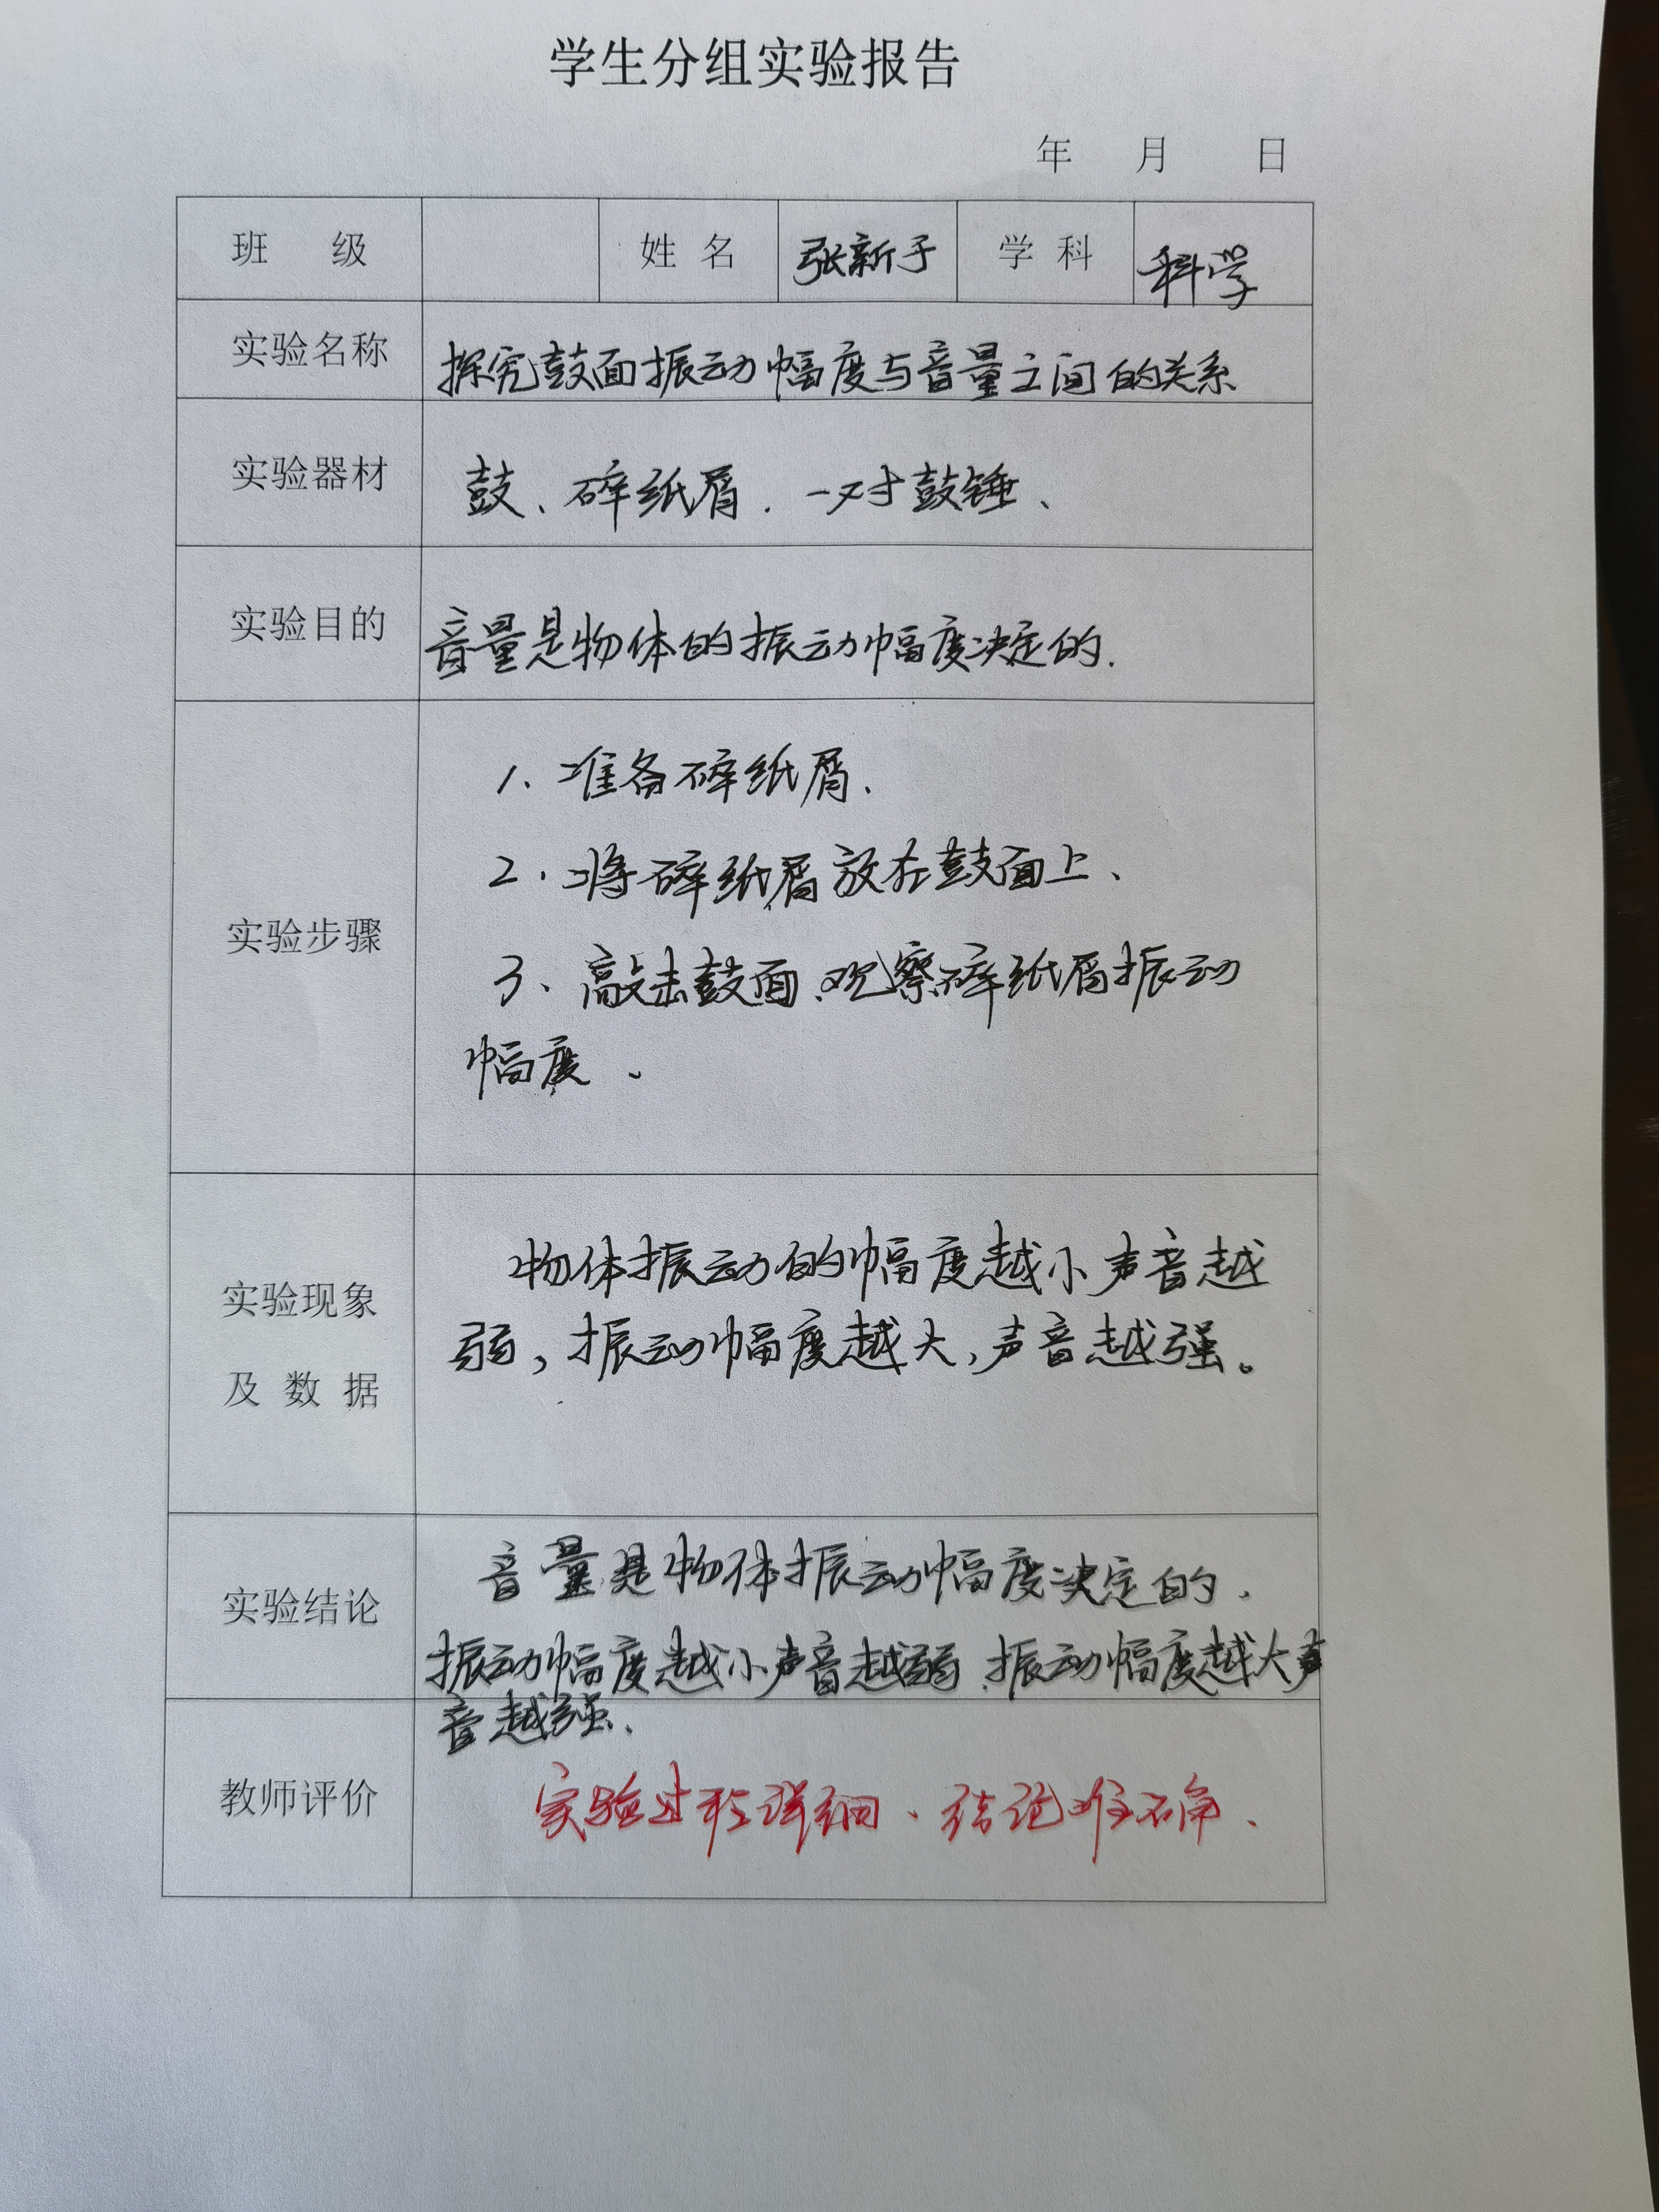 学生分组实验报告
年 月 日
班 级 姓 名 张新予 学 科 科学
实验名称 探究鼓面振动幅度与音量之间的关系
实验器材 鼓、碎纸屑.一对鼓锤、
实验目的 音量是物体的振动幅度决定的.
实验步骤
1、准备碎纸屑.
2.将碎纸屑放在鼓面上、
3、敲击鼓面、观察碎纸屑振动
幅度、
实验现象
及 数 据
物体振动的幅度越小声音越
弱,振动幅度越大,声音越强。
实验结论
音量是物体振动幅度决定的.
振动幅度越小声音越弱.振动幅度越大声
音越强、
教师评价 实验过程详细、结论准确、